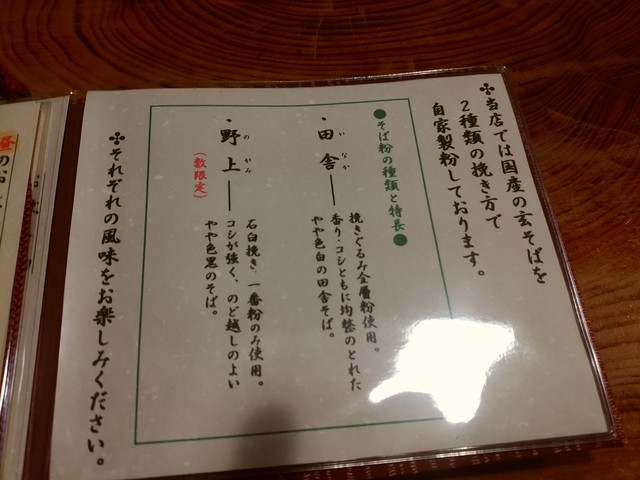 ✣当店では国産の玄そばを
2種類の挽き方で
自家製粉しております。
●そば粉の種類と特長●
・田舎──
いなか
挽きぐるみ全層粉使用。
香り・コシともに均整のとれた
やや色白の田舎そば。
・野上──
のがみ
(数限定)
石臼挽き、一番粉のみ使用。
コシが強く、のど越しのよい
やや色黒のそば。
✣それぞれの風味をお楽しみください。